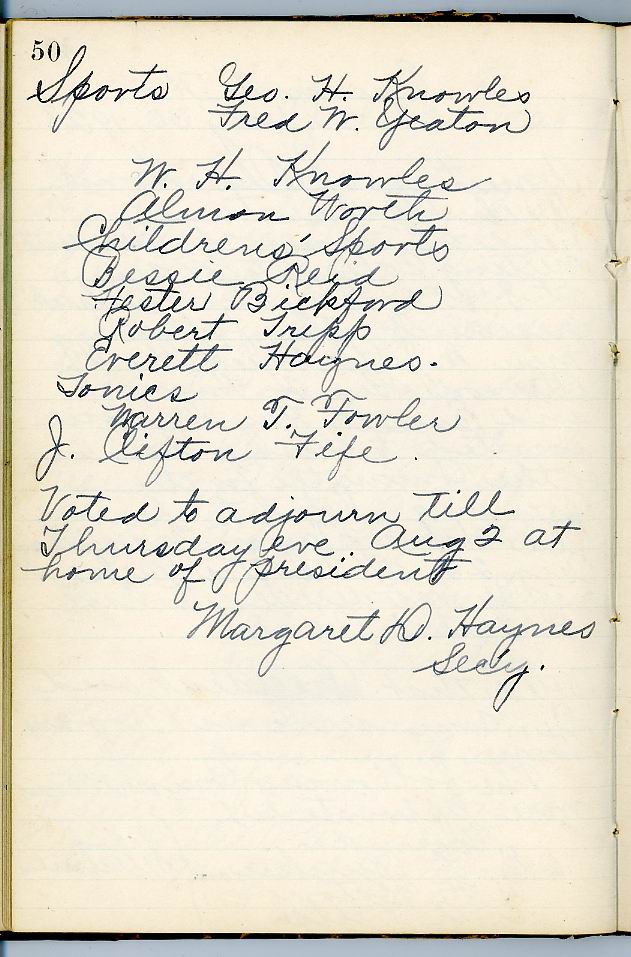 50
Sports Geo. H. Knowles
Fred W. Yeaton
W. H. Knowles
Almon Worth
Childrens' Sports
Bessie Reid
Hester Bickford
Robert Tripp
Everett Haynes.
Tonics
Warren T. Fowler
J. Clifton Fife.
Voted to adjourn till
Thursday eve. Aug 2 at
home of president
Margaret D. Haynes
Sec'y.